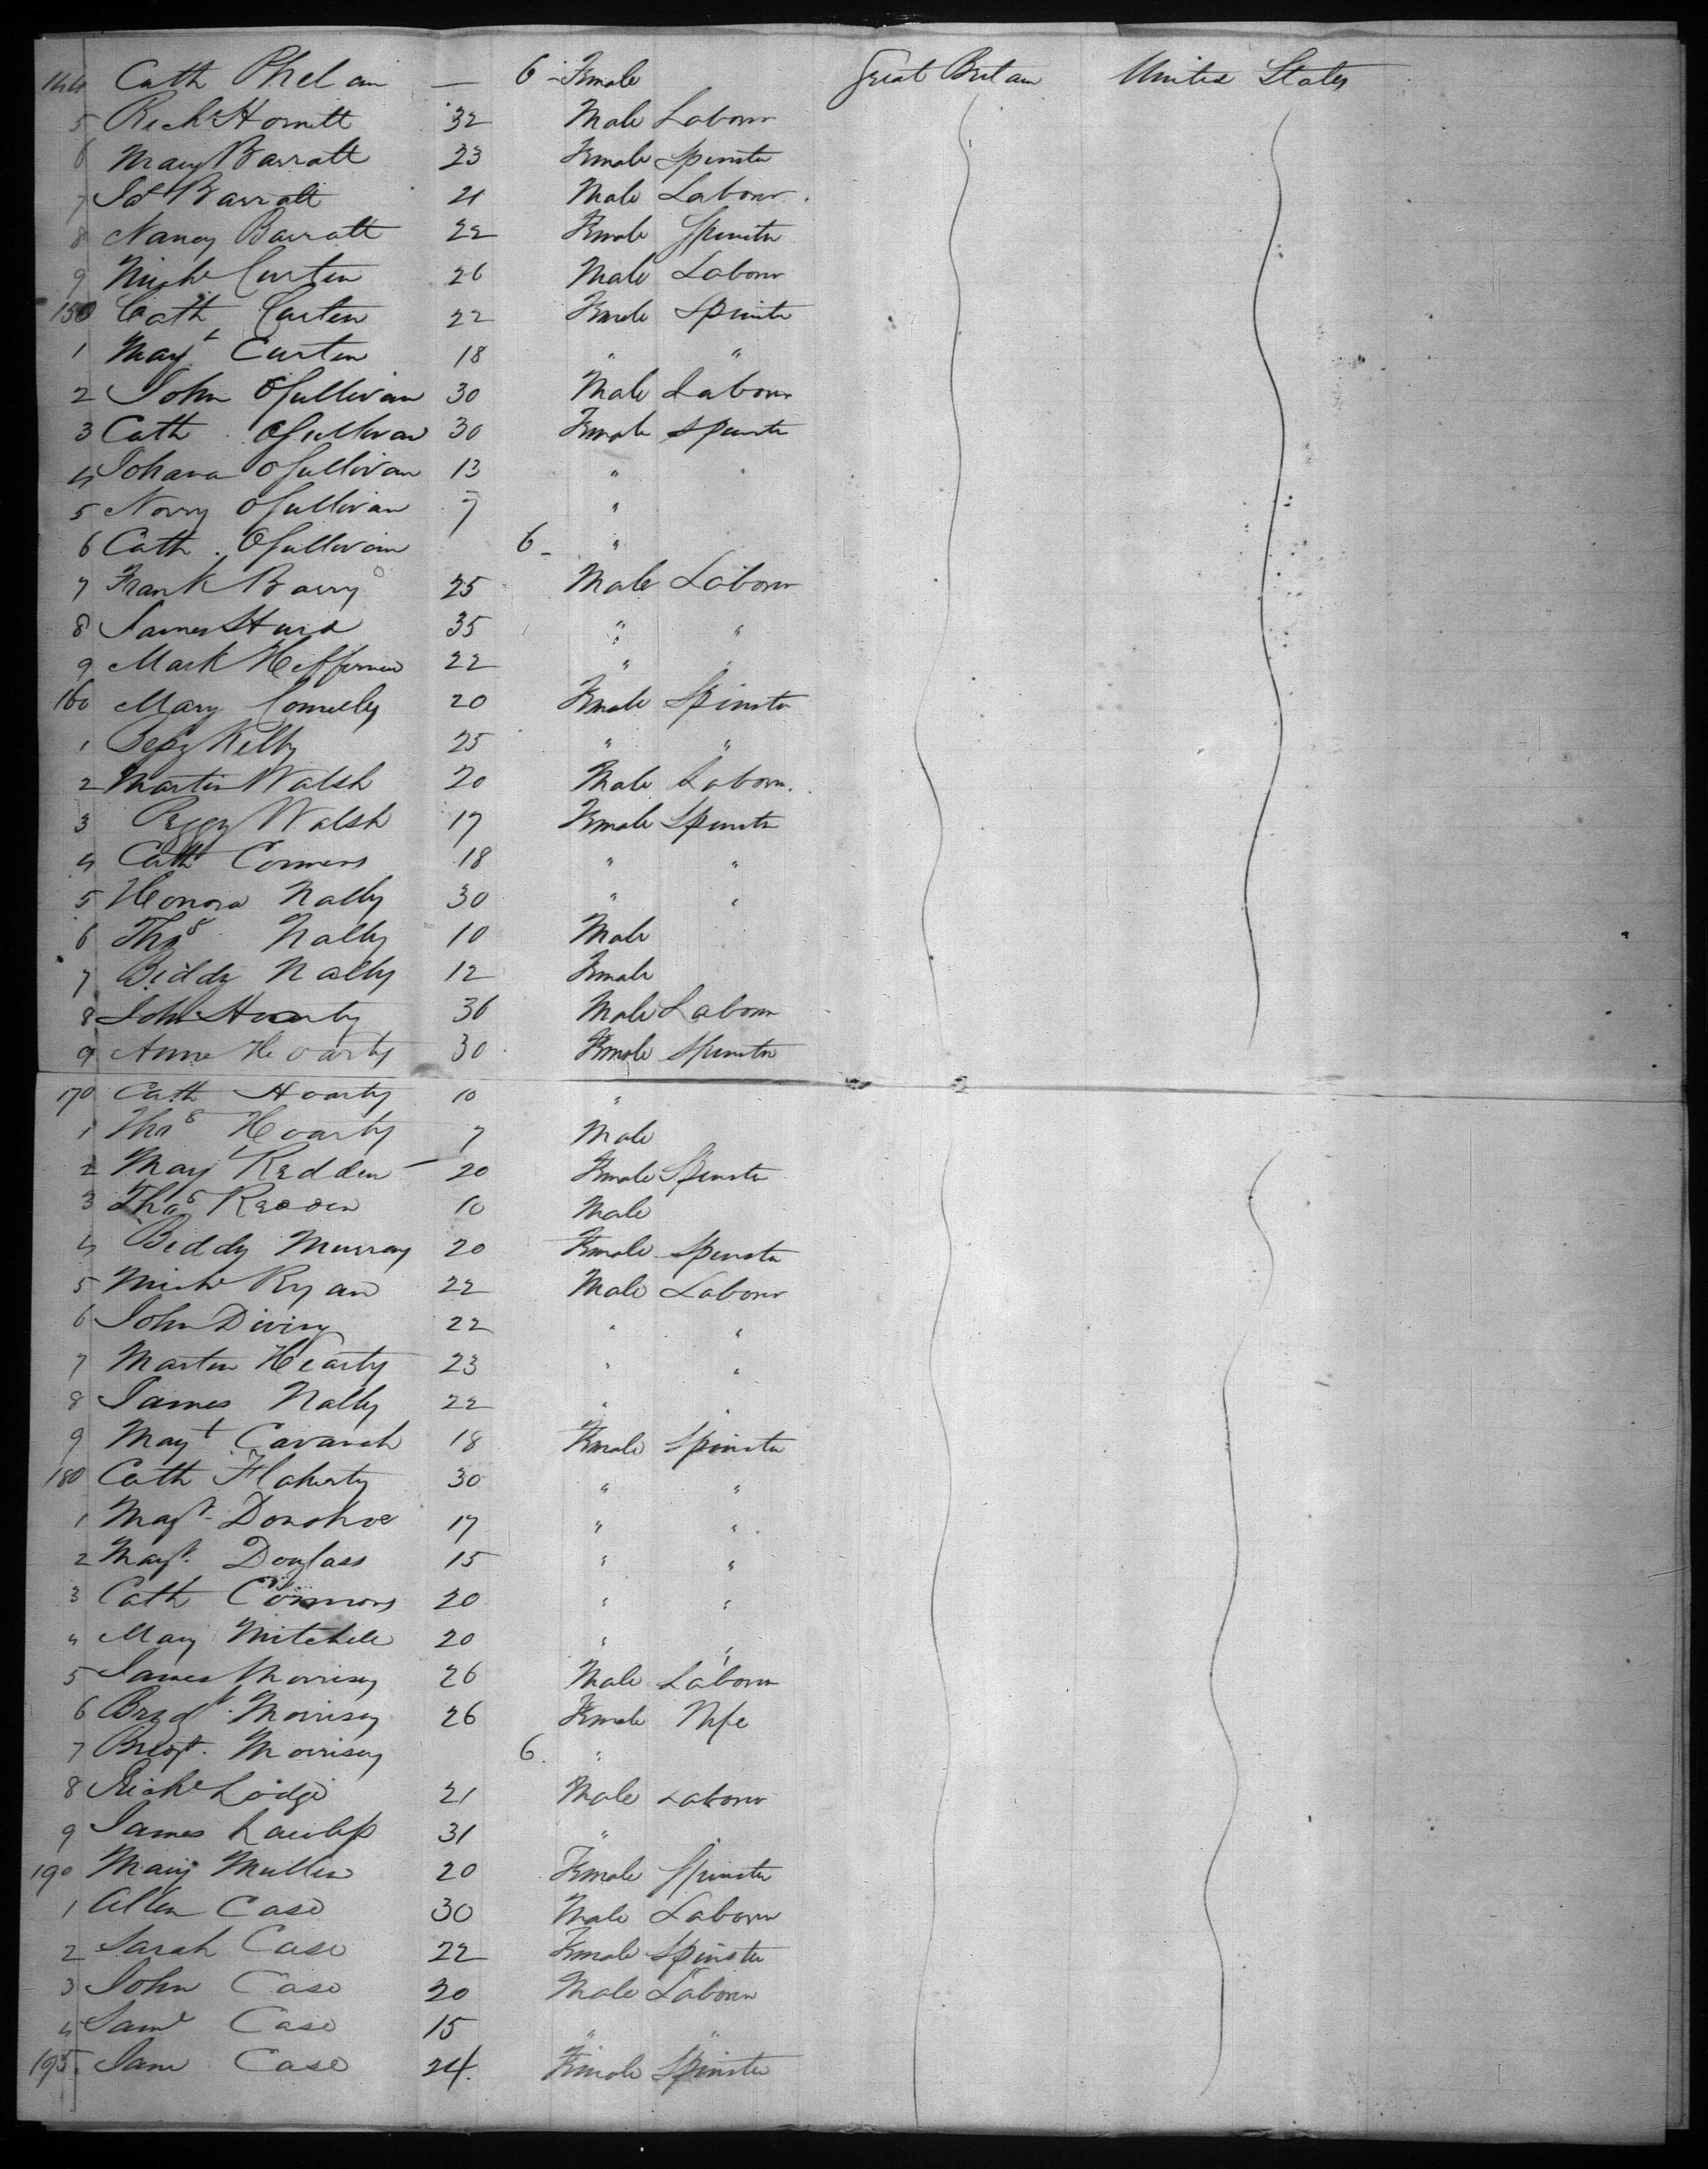 144 Cath Phelan — 6 - Female Great Britain United States
5 Richd Hornett 32 Male Labour
6 Mary Barratt 23 Female Spinster
7 Jas Barratt 21 Male Labour
8 Nancy Barratt 22 Female Spinster
9 Michl Curten 26 Male Labour
150 Cath Curten 22 Female Spinster
1 Magt Curten 18 " "
2 John OSullivan 30 Male Labour
3 Cath OSullivan 30 Female Spinster
4 Johana OSullivan 13 " "
5 Norry OSullivan 7 "
6 Cath OSullivan 6 - "
7 Frank Barry 25 Male Labour
8 James Hurd 35 " "
9 Mark Heffernen 22 " "
160 Mary Connelly 20 Female Spinster
1 Bessy Kelly 25 " "
2 Martin Walsh 20 Male Labour
3 Peggy Walsh 17 Female Spinster
4 Cath Conners 18 " "
5 Honora Nally 30 " "
6 Thos Nally 10 Male
7 Biddy Nally 12 Female
8 John Hoarty 36 Male Labour
9 Anne Hoarty 30 Female Spinster
170 Cath Hoarty 10 "
1 Thos Hoarty 7 Male
2 Mary Redden 20 Female Spinster
3 Thos Redden 10 Male
4 Biddy Murray 20 Female Spinster
5 Michl Ryan 22 Male Labour
6 John Diviny 22 " "
7 Martin Hearty 23 " "
8 James Nally 22 " "
9 Magt Cavanah 18 Female Spinster
180 Cath Flaherty 30 " "
1 Magt Donohoe 17 " "
2 Magt Douglass 15 " "
3 Cath Connors 20 " "
4 Mary Mitchell 20 " "
5 James Morrisey 26 Male Labour
6 Bridgt Morrisey 26 Female Wife
7 Bridgt Morrisey 6 "
8 Richd Lodge 21 Male Labour
9 James 31 " "
190 Mary Mullen 20 Female Spinster
1 Allen Case 30 Male Labour
2 Sarah Case 22 Female Spinster
3 John Case 20 Male Labour
4 Saml Case 15 " "
195 Jane Case 24 Female Spinster